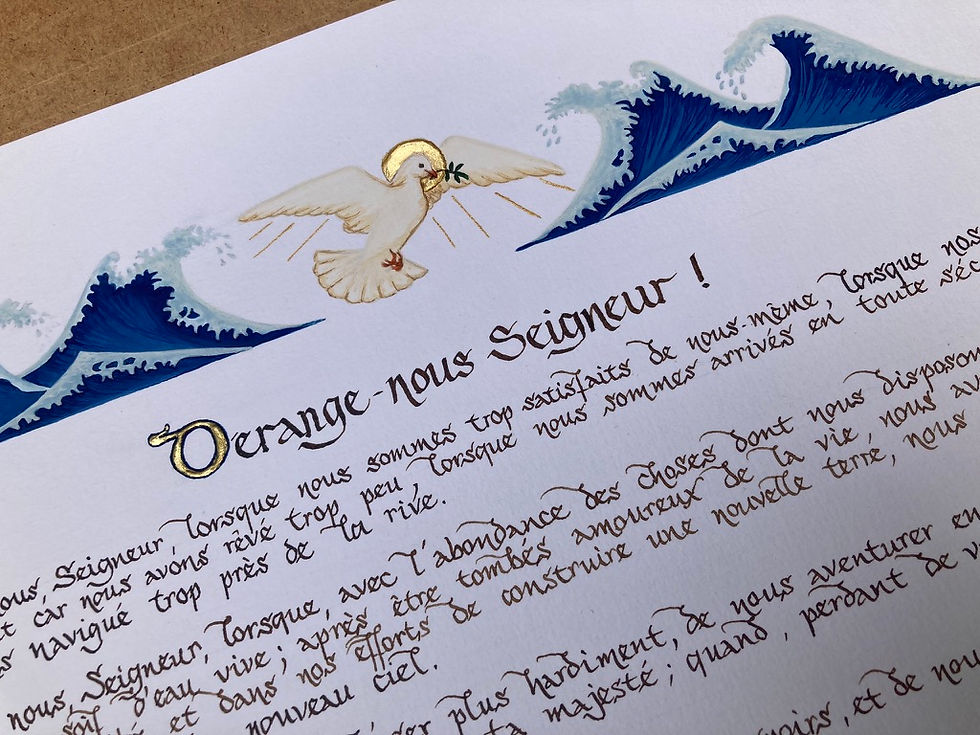 Derange-nous Seigneur !
nous, Seigneur, lorsque nous sommes trop satisfaits de nous-même, lorsque nos
car nous avons rêvé trop peu, lorsque nous sommes arrivés en toute
navigué trop près de la rive.
nous, Seigneur, lorsque, avec l'abondance des choses dont nous
d'eau vive ; après être tombés amoureux de la vie, nous
et dans nos efforts de construire une nouvelle terre, nous
nouveau ciel.
plus hardiment, de nous aventurer en
majesté ; quand, perdant de
et de